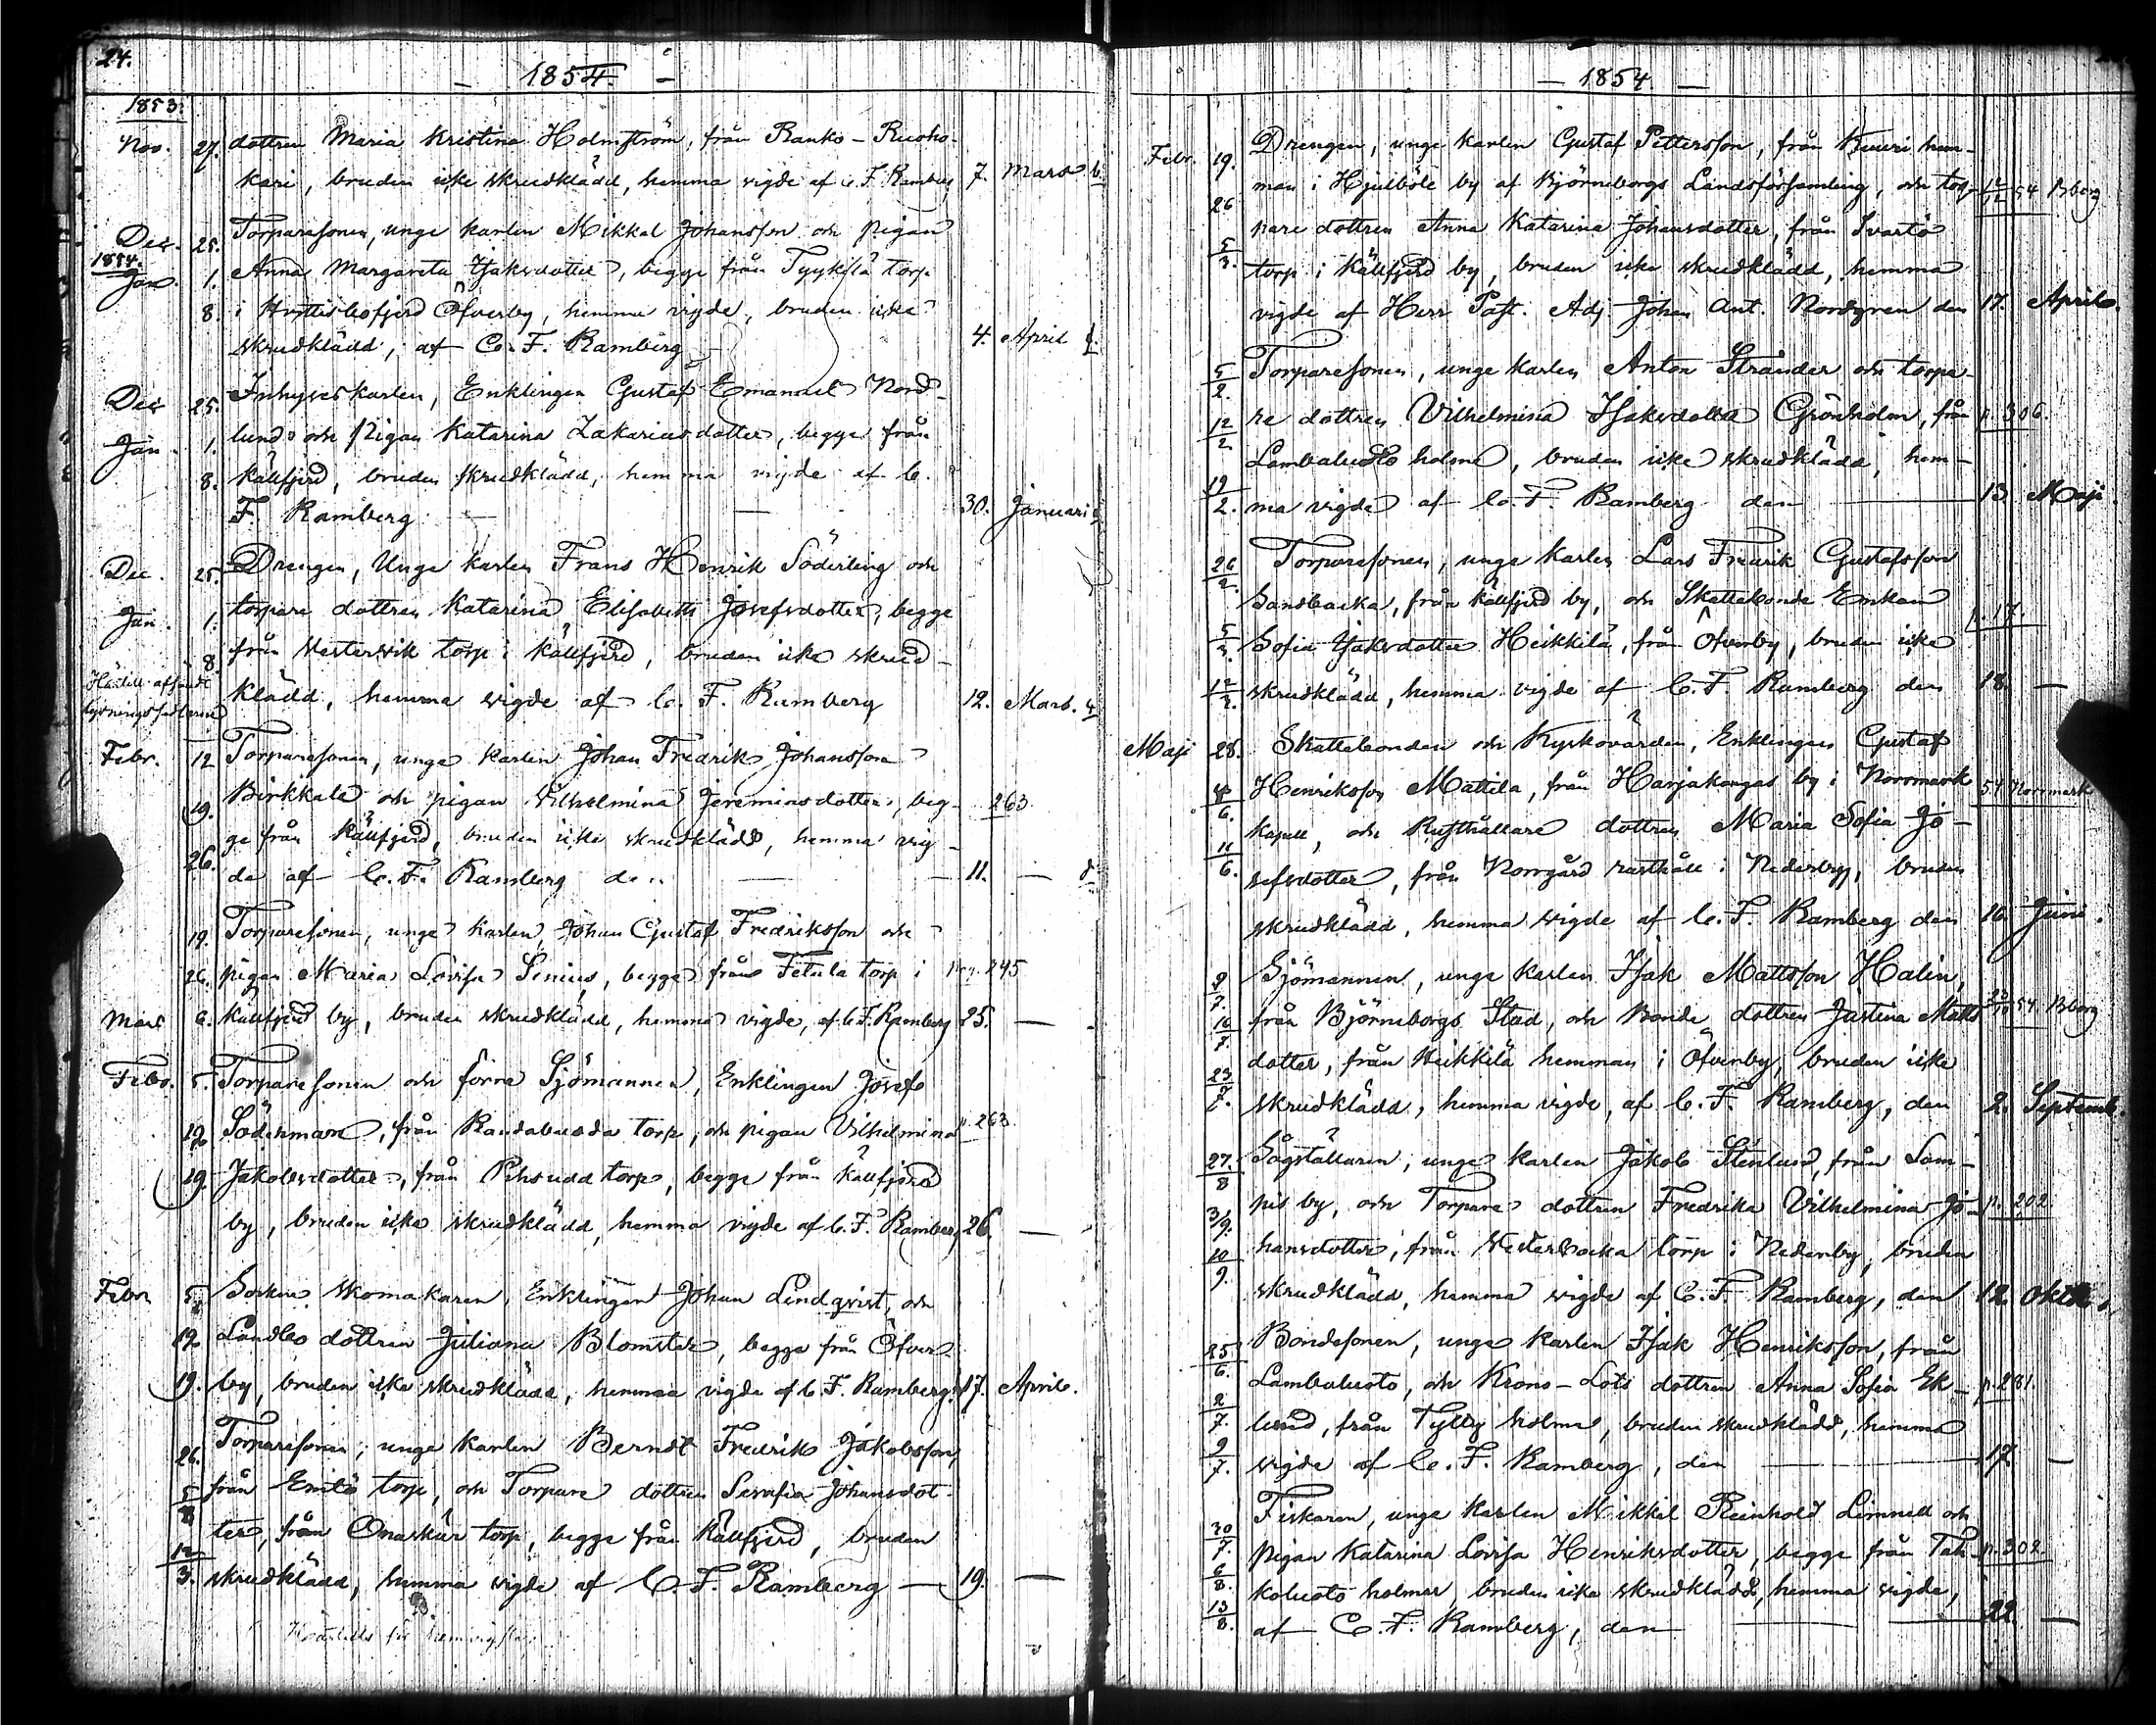 24.
1854.
1853.
Nov. 27. dottren Maria Kristina Holmström, från Ranko-Ruoho-
kari, bruden icke skrudklädd, hemma vigde af C. F. Ramberg 7. Mars
Dec. 25. Torparesonen, unge karlen Mikkel Johansson och pigan
1854.
Jan. 1. Anna Margareta Isaksdotter, begge från torp
8. i Öfverby, hemma vigde, bruden icke
skrudklädd, af C. F. Ramberg 4. April
Dec. 25. Inhyseskarlen, Enklingen Gustaf Emanuel Nord-
Jan. 1. lund och Pigan Katarina Zakariasdotter, begge från
8. Källfjerd, bruden skrudklädd, hemma vigde af C.
F. Ramberg 30. Januari
Dec. 25. Drengen, Unge karlen Frans Henrik Söderling och
Jan. 1. torpare dottren Katarina Elisabeth Josefsdotter, begge
8. från Vestervik torp i Källfjerd, bruden icke skrud-
klädd, hemma vigde af C. F. Ramberg 12. Mars.
Febr. 12 Torparesonen, unge karlen Johan Fredrik Johansson
19. Birkkala och pigan Vilhelmina Jeremiasdotter, beg- 263.
ge från Källfjerd, bruden icke skrudklädd, hemma vig-
26. de af C. F. Ramberg den 11. —
19. Torparesonen, unge karlen Johan Gustaf Fredriksson och
26. pigan Maria Lovisa Senius, begge från torp i pag. 245
Mars 6. Källfjerd by, bruden skrudklädd, hemma vigde, af C. F. Ramberg 25. —
Febr. 5. Torparesonen och förre Sjömannen, Enklingen Josef
12 Söderman, från torp, och pigan Vilhelmina p. 263
19. Jakobsdotter, från torp, begge från Källfjerd
by, bruden icke skrudklädd, hemma vigde af C. F. Ramberg 26. —
Febr. 5. Socken skomakaren, Enklingen Johan Lindqvist, och
12. Landbo dottren Juliana Blomster, begge från Öfver-
19. by, bruden icke skrudklädd, hemma vigde af C. F. Ramberg 17. April.
26. Torparesonen, unge karlen Berndt Fredrik Jakobsson,
5 från torp, och Torpare dottren Serafia Johansdot-
ter, från Onaskär torp, begge från Källfjerd, bruden
12/3. skrudklädd, hemma vigde af C. F. Ramberg — 19. —
1854.
Febr. 19. Drengen, unge karlen Gustaf Pettersson, från Kuuri hem-
man i Hjulböle by af Björneborgs Landsförsamling, och tor- 54 Bborg
26 pare dottren Anna Katarina Johansdotter, från Svartö
5/3. torp i Källfjerd by, bruden icke skrudklädd, hemma
vigde af Herr Past. Adj Johan Ant. Nordgren den 17. April.
5/2. Torparesonen, unge karlen Anton Strander och torpa-
12/2 re dottren Vilhelmina Isaksdotter Grönholm, från p. 306.
Lambaluoto holme, bruden icke skrudklädd, hem-
19/2. ma vigde af C. F. Ramberg den 13. Maji.
26/2. Torparesonen, unge karlen Lars Fredrik Gustafsson
Sandbacka, från Källfjerd by, och Skattebonde Enkan p. 17.
5/3. Sofia Isaksdotter Heikkilä, från Öfverby, bruden icke
12 skrudklädd, hemma vigde af C. F. Ramberg den 18. —
Maji 28. Skattebonden och Kyrkovärden, Enklingen Gustaf
4/6. Henriksson Mattila, från Harjakangas by i Norrmark 54 Norrmark
kapell, och Rusthållare dottren Maria Sofia Jo-
11/6. sefsdotter, från Norrgård rusthåll i Nederby, bruden
skrudklädd, hemma vigde af C. F. Ramberg den 16. Juni.
9/7. Sjömannen, unge karlen Isak Mattsson Halin,
16/7. från Björneborgs Stad, och Bonde dottren Justina Matts 54 Bborg
dotter, från Heikkilä hemman i Öfverby, bruden icke
23/7. skrudklädd, hemma vigde, af C. F. Ramberg, den 2. Septemb.
27./8 Sågställaren, unge karlen Jakob Stenlund, från Lam-
3/9. pis by, och Torpare dottren Fredrika Vilhelmina Jo- p. 202.
10/9. hansdotter, från Vesterbacka torp i Nederby, bruden
skrudklädd, hemma vigde af C. F. Ramberg, den 12. Oktob.
25/6. Bondesonen, unge karlen Isak Henriksson, från
2/7. Lambaluoto, och Krono-Lots dottren Anna Sofia Ek- p. 281.
lund, från holme, bruden skrudklädd, hemma
9/7. vigde af C. F. Ramberg, den 17. —
30/7. Fiskaren, unge karlen Mikkel Reinhold Limnell och
6/8. pigan Katarina Lovisa Henriksdotter, begge från Tah- p. 302.
13/8. koluoto holmar, bruden icke skrudklädd, hemma vigde,
af C. F. Ramberg, den 22. —